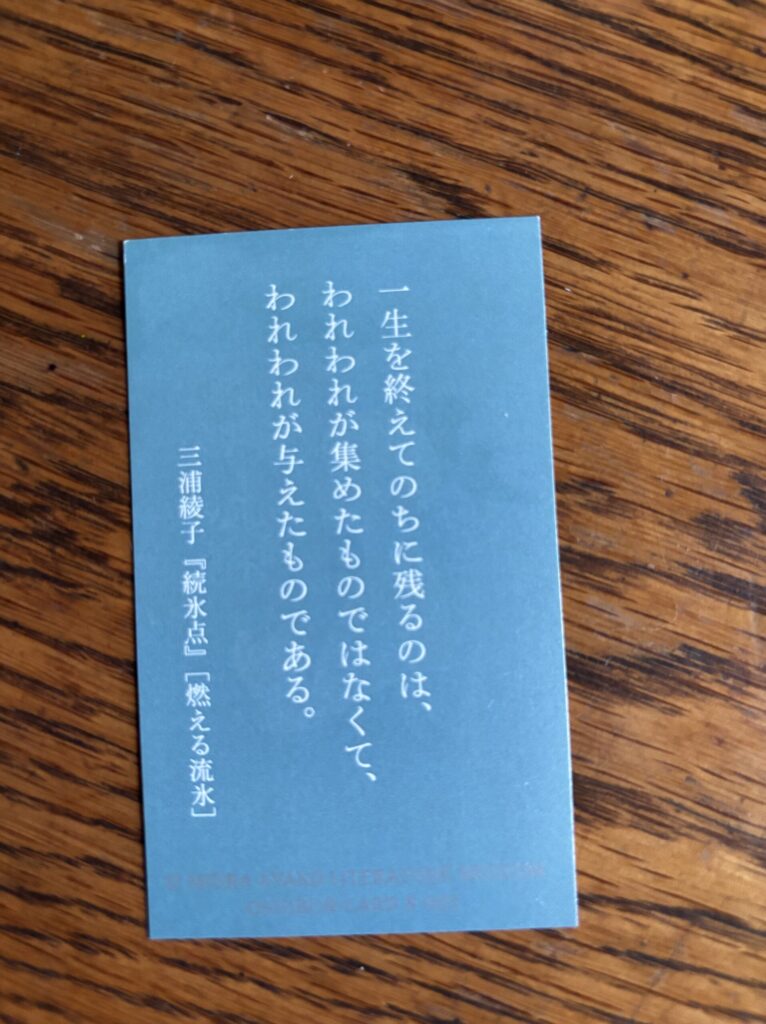 一生を終えてのちに残るのは、
われわれが集めたものではなくて、
われわれが与えたものである。
三浦綾子『続氷点』［燃える流氷］
MIURA AYAKO LITERATURE MUSEUM